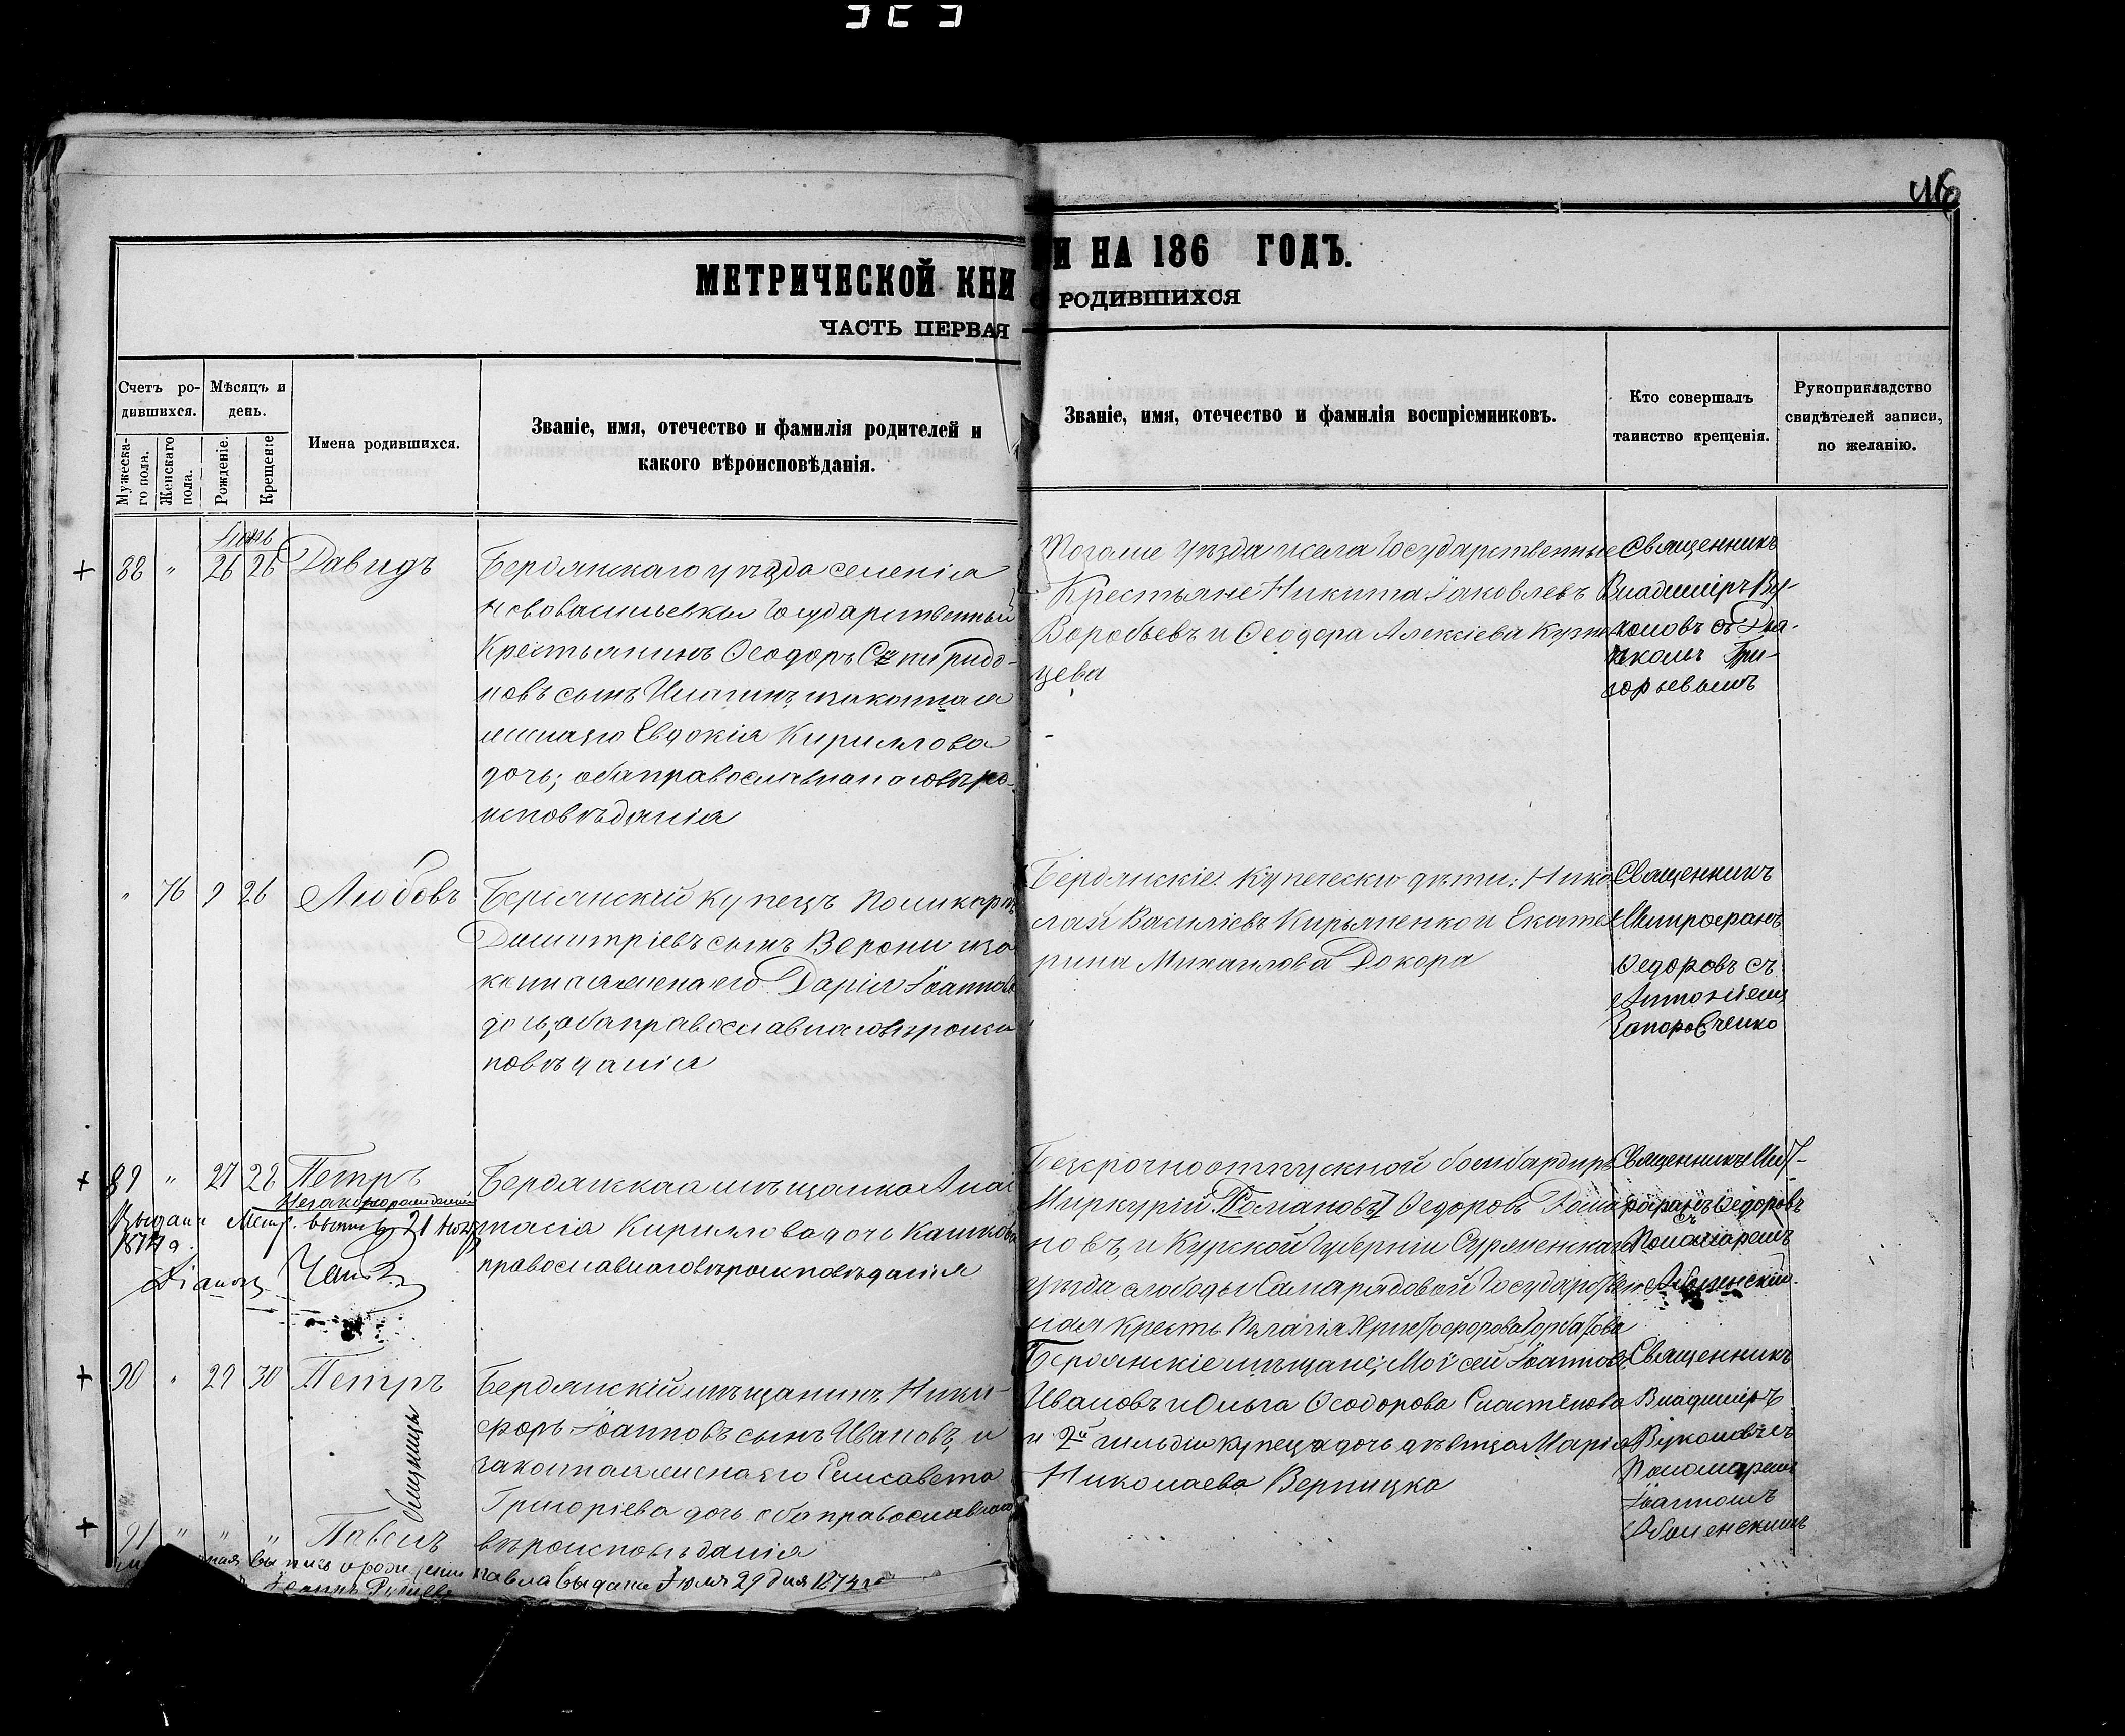 46
МЕТРИЧЕСКОЙ КНИ
И НА 186 ГОДЪ.
ЧАСТЬ ПЕРВАЯ
РОДИВШИХСЯ
Счетъ ро-
дившихся.
Мѣсяцъ и
день.
Мужеска-
го пола.
Женскаго
пола.
Рожденіе.
Крещеніе
Имена родившихся.
Званіе, имя, отечество и фамилія родителей и
какого вѣроисповѣданія.
Званіе, имя, отечество и фамилія воспріемниковъ.
Кто совершалъ
таинство крещенія.
Рукоприкладство
свидѣтелей записи,
по желанію.
Іюнь
88 " 26 26 Давидъ
Бердянскаго уѣзда селенія
Нововасильевки Государственный
Крестьянинъ Ѳеодоръ Спиридо-
новъ сынъ и законная
жена его Евдокія Кириллова
дочь; оба православнаго вѣро-
исповѣданія
Тогоже уѣзда и села Государственные
Крестьяне Никита Іаковлевъ
Воробьевъ и Ѳеодора Алексіева Кузне
цева
Священникъ
Владиміръ Ву-
коловъ съ Дья-
комъ Гри-
горьевымъ
" 76 9 26 Любовь
Бердянскій купецъ Поликарпъ
Димитріевъ сынъ и за
конная жена его Дарія Іоаннова
дочь; оба православнаго вѣроис
повѣданія
Бердянскіе купеческіе дѣти: Нико
лай Василіевъ Кирьяненко и Екате
рина Михаилова Докора
Священникъ
Митрофанъ
Ѳедоровъ съ
Антоніемъ
89 " 27 28 Петръ
Незаконорожденный
Выдана Метр. выпись 21
1874 г.
Бердянская мѣщанка Анас
тасія Кириллова дочь
православнаго вѣроисповѣданія
Безсрочноотпускной бомбардиръ
Миркурій Ѳедоровъ Рома
новъ, и Курской Губерніи
уѣзда слободы Государствен
ная крест. Пелагія
Священникъ Мит-
рофанъ Ѳедоровъ
съ
Пономаремъ
90 " 29 30 Петръ
близнецы
Бердянскій мѣщанинъ Ники-
форъ Іоанновъ сынъ Ивановъ, и
законная жена его Елисавета
Григоріева дочь оба православнаго
вѣроисповѣданія
Бердянскіе мѣщане; Моисей Іоанновъ
Ивановъ и Ольга Ѳеодорова
и 2й гильдіи купеч. дочь дѣвица Марія
Николаева Верницка
Священникъ
Владиміръ
Вуколовъ съ
Пономаремъ
Іоанномъ
91 " " " Павелъ
выпись о рожденіи Павла выдана Іюля 29 дня 1874 г.